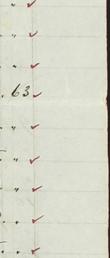 " ✓
" ✓
. 63 ✓
" ✓
" ✓
" ✓
" ✓
. " ✓
" ✓